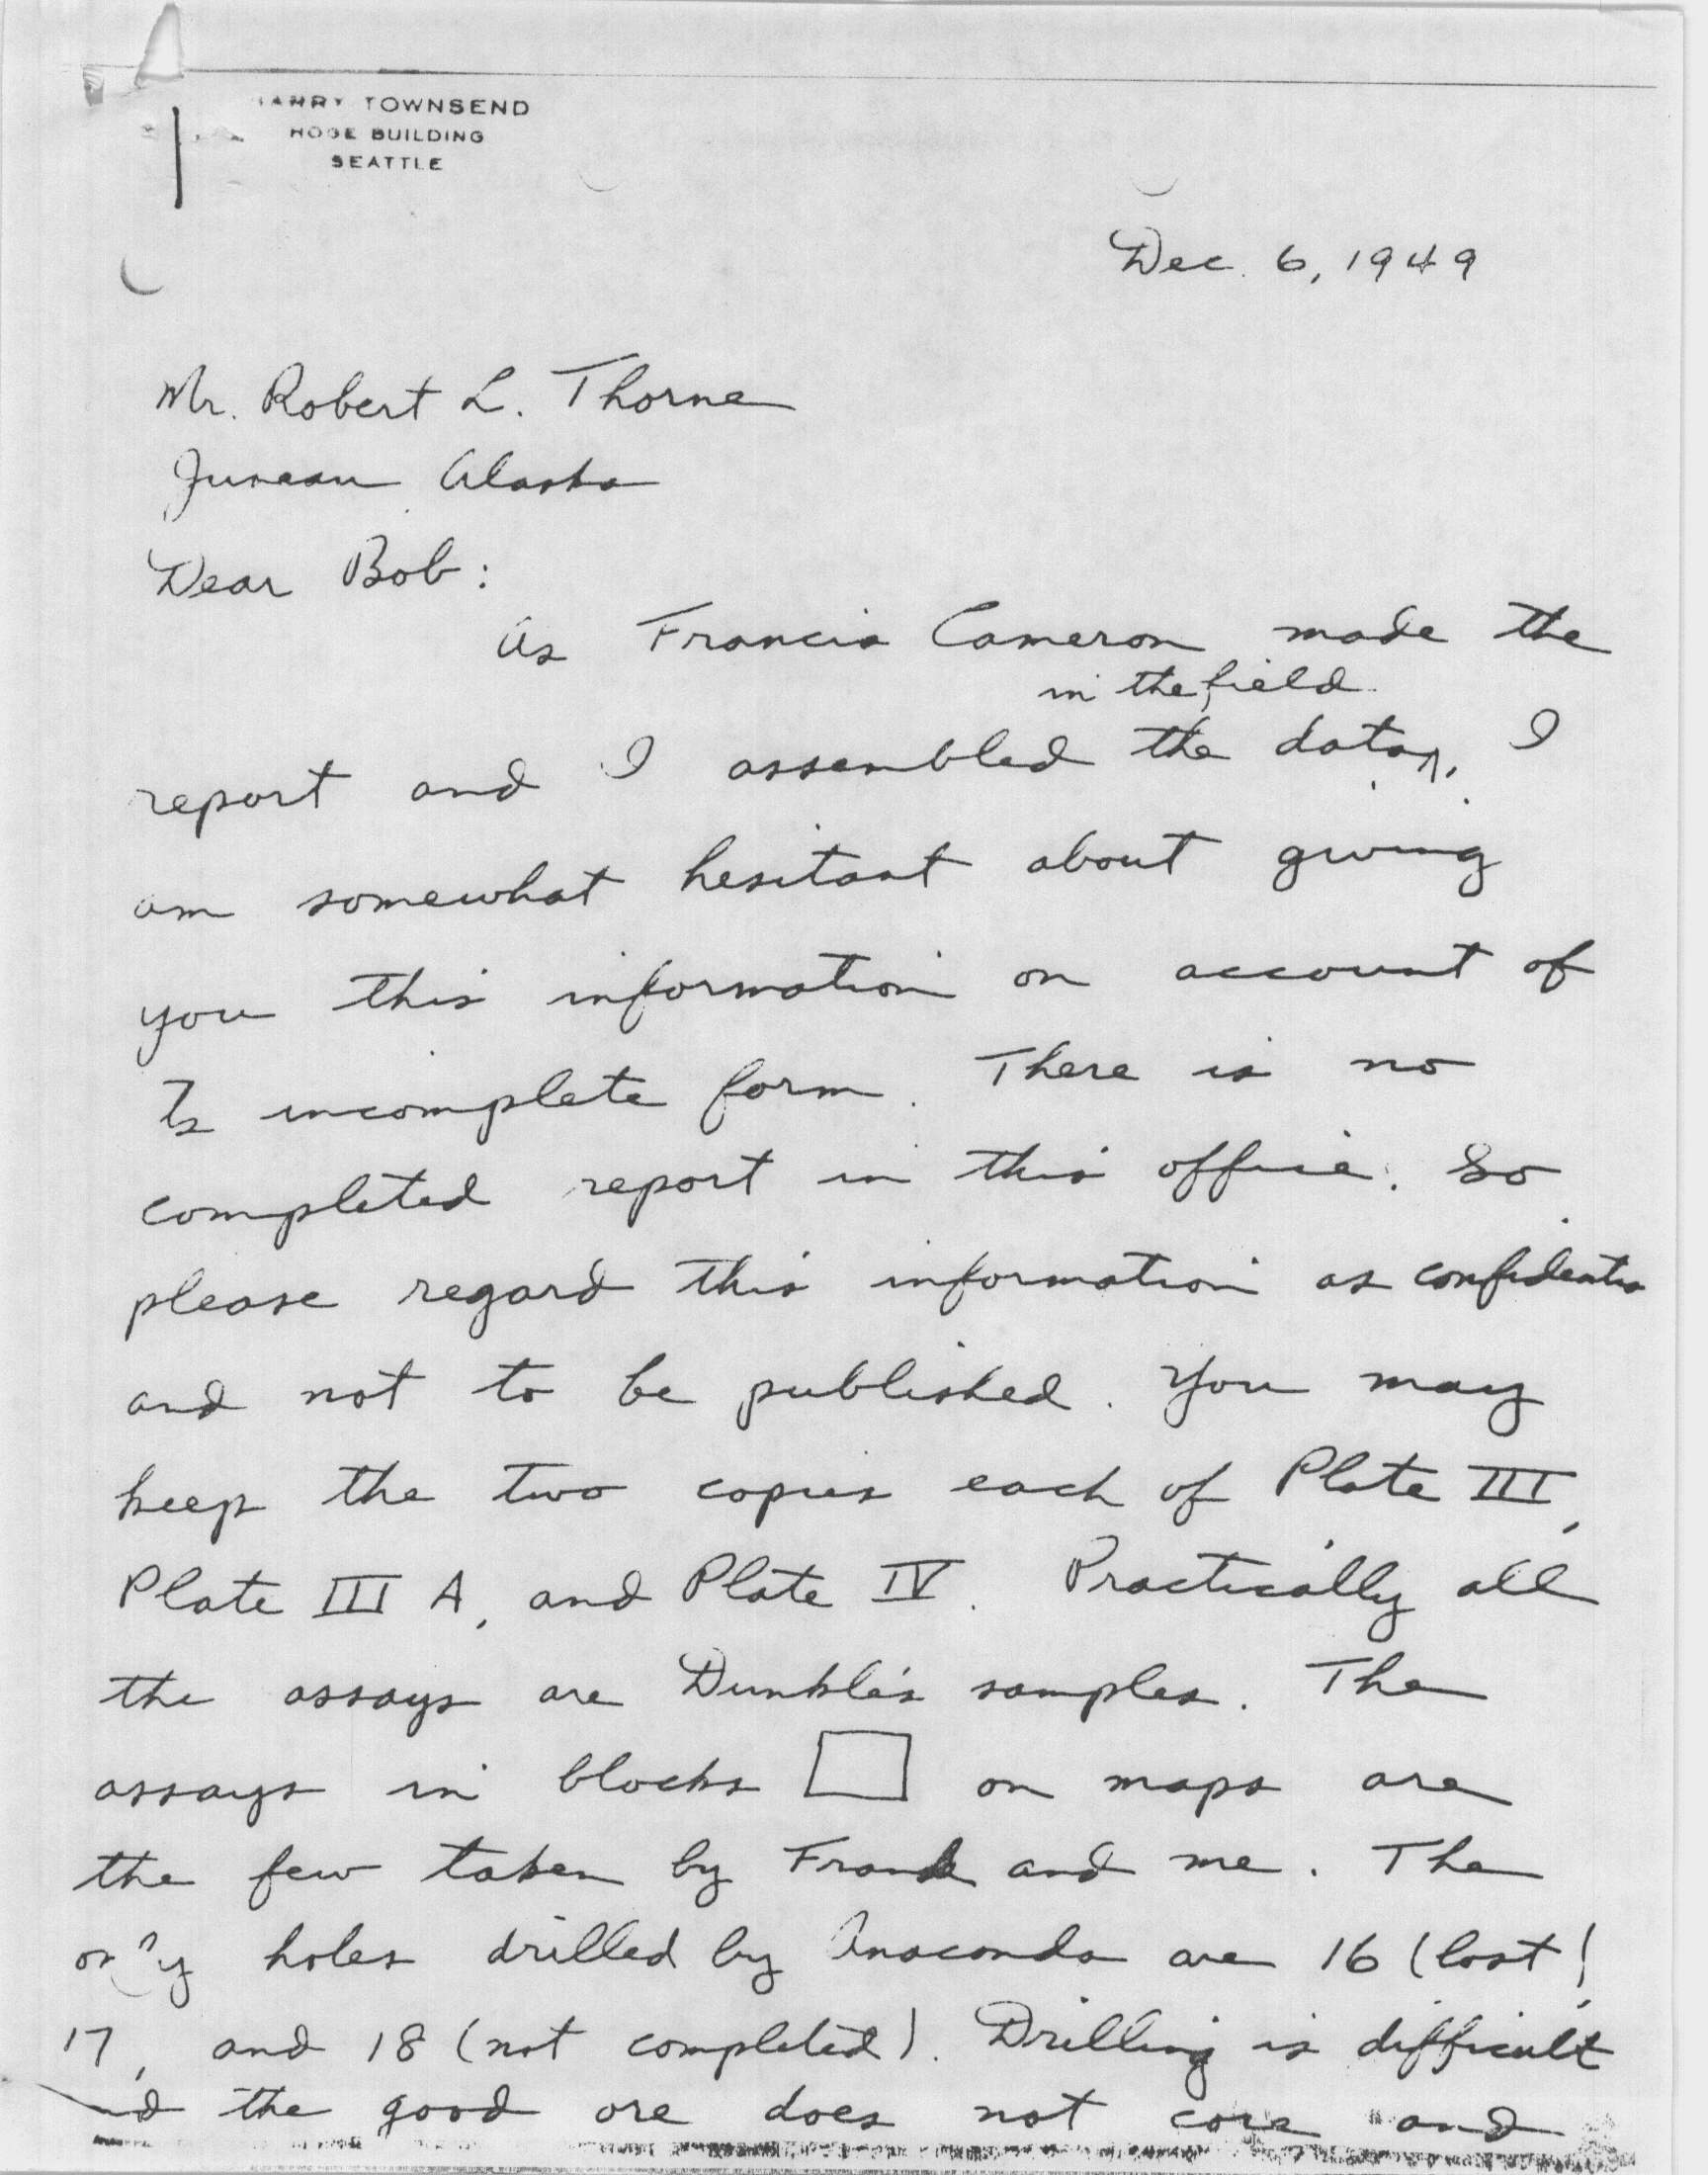 HARRY TOWNSEND
HOGE BUILDING
SEATTLE
Dec. 6, 1949
Mr. Robert L. Thorne
Juneau Alaska
Dear Bob:
As Francis Cameron made the
in the field
report and I assembled the data, I
am somewhat hesitant about giving
you this information on account of
its incomplete form. There is no
completed report in this office. So
please regard this information as confidential
and not to be published. You may
keep the two copies each of Plate III,
Plate III A, and Plate IV. Practically all
the assays are Dunkle's samples. The
assays in blocks on maps are
the few taken by Frank and me. The
only holes drilled by Anaconda are 16 (lost)
17, and 18 (not completed). Drilling is difficult
and the good ore does not core and